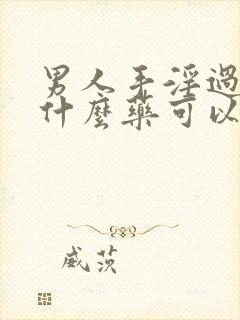 男人手淫過
什麼藥可以
威茨